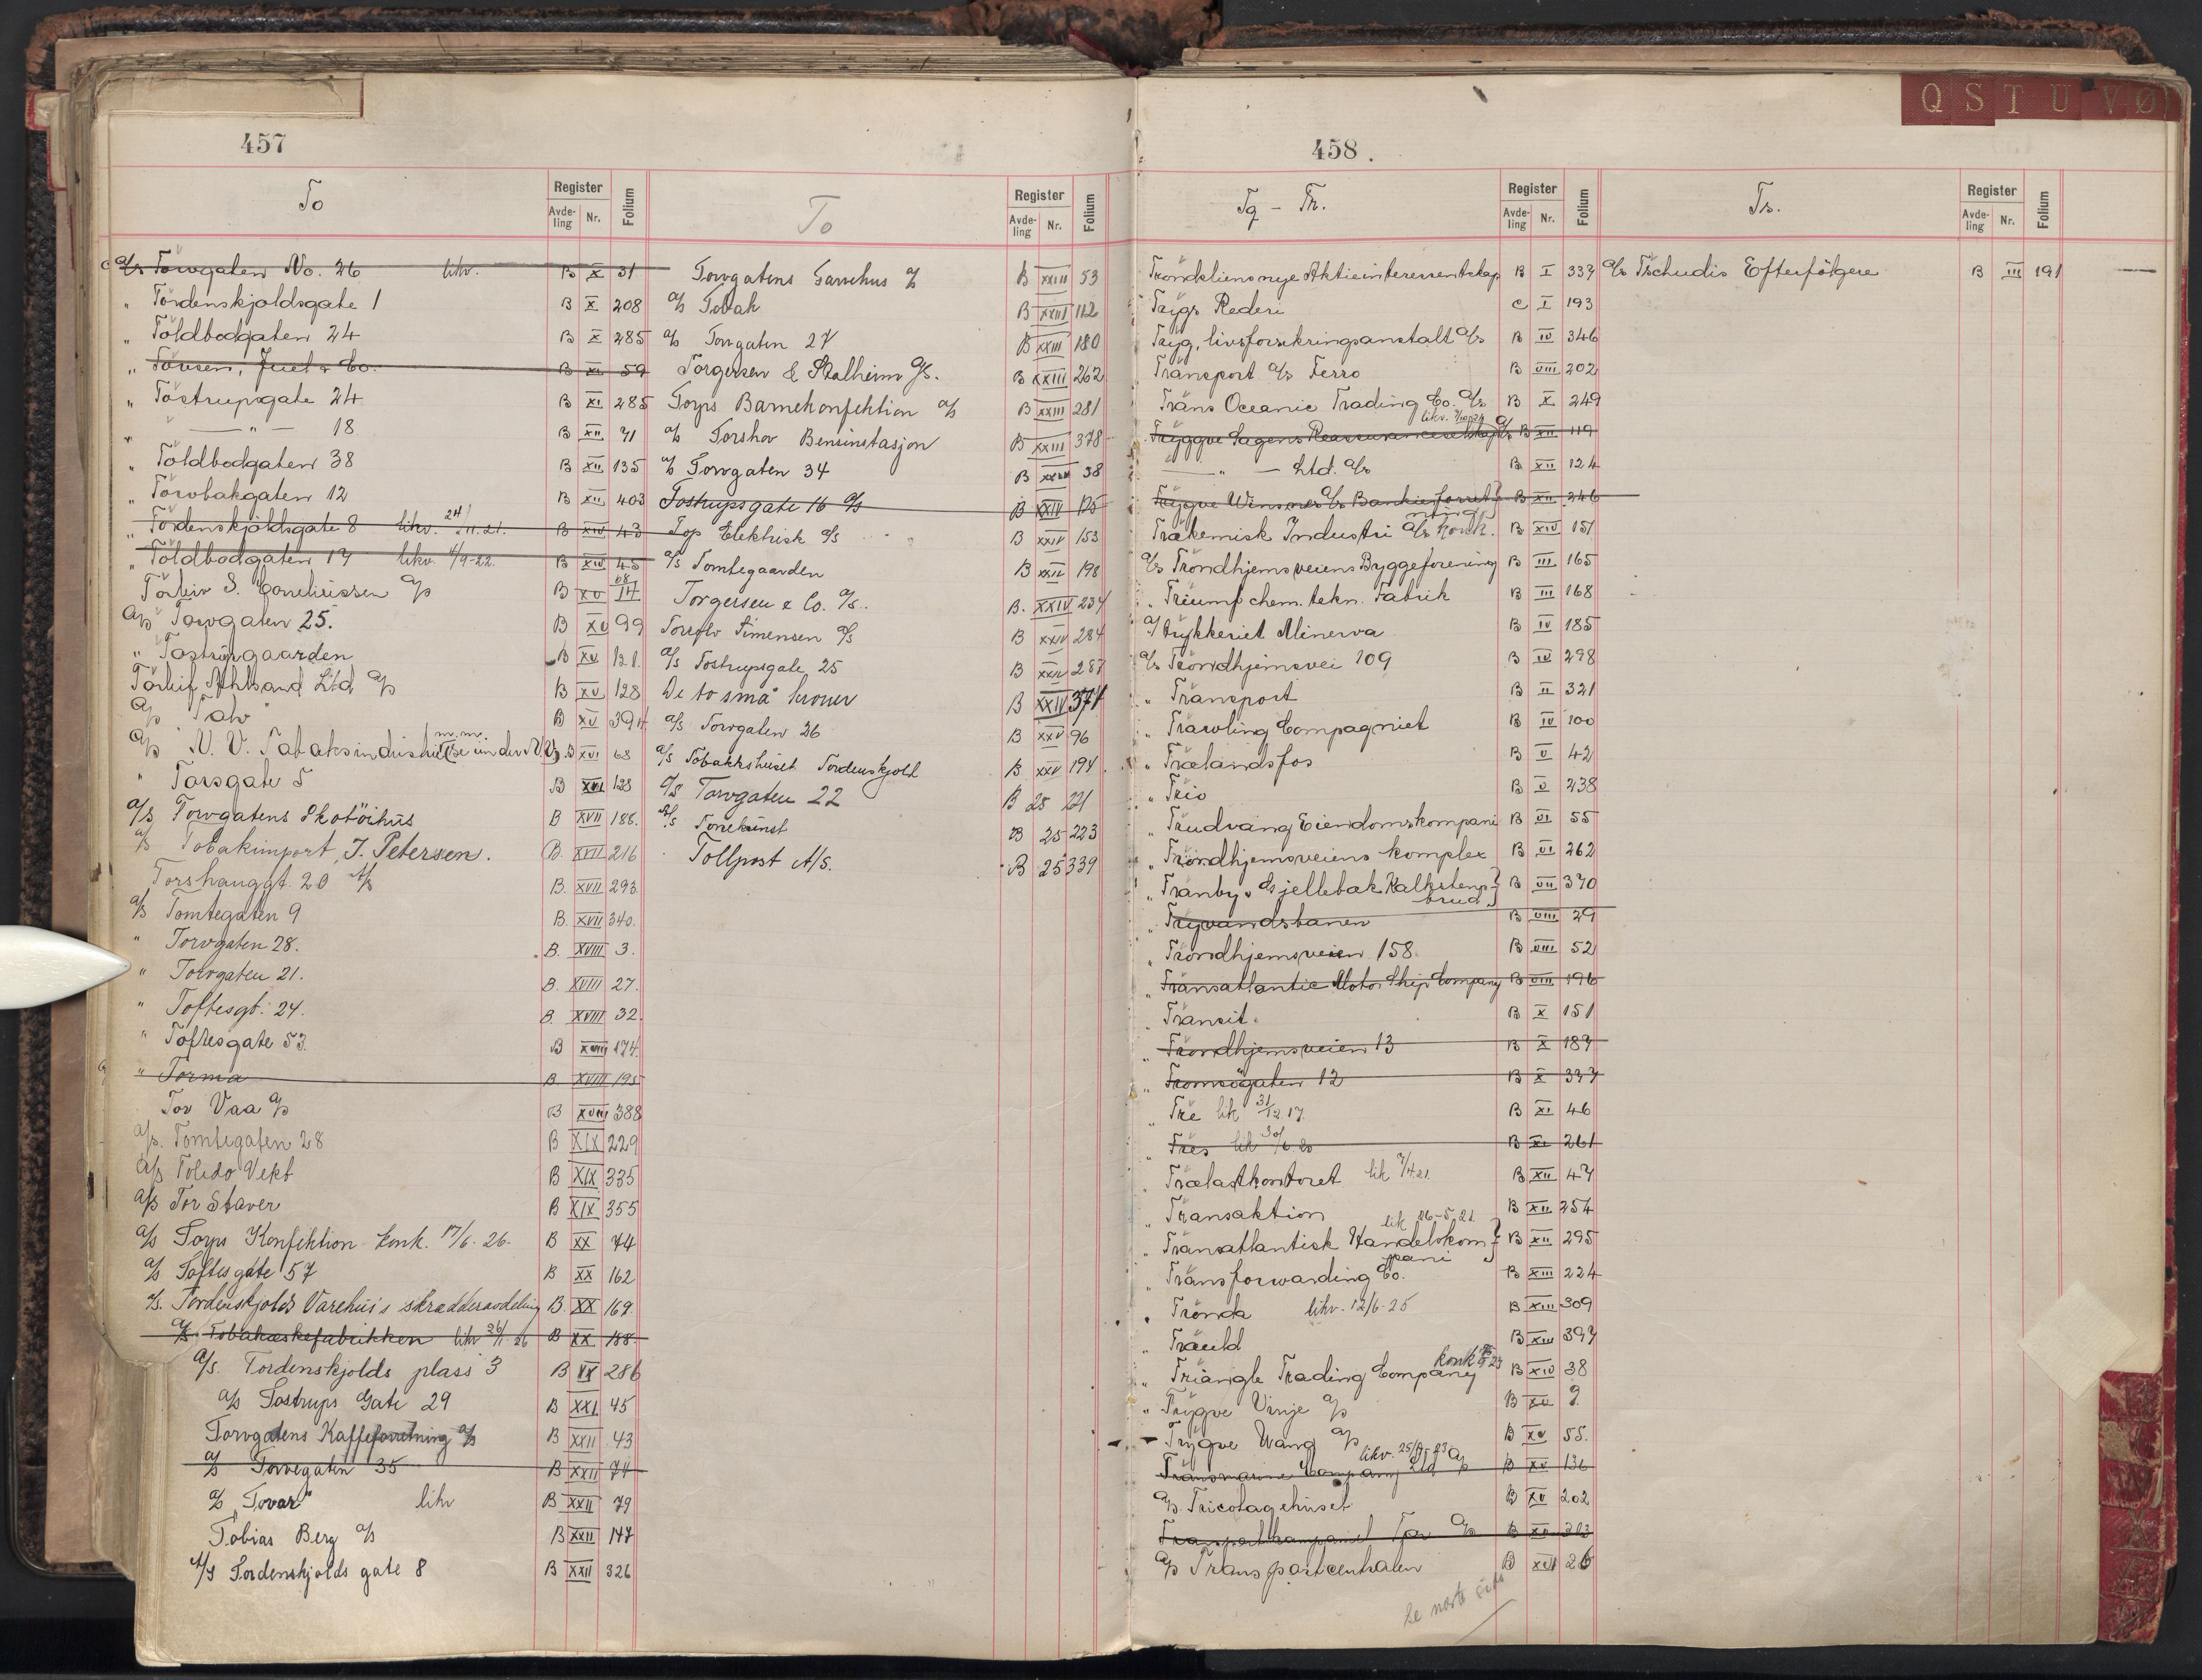 457
To
Register
Avde-ling Nr. Folium
A/s Torvgaten No. 26 likv. B X 31
" Tordenskjoldsgate 1 B X 208
" Toldbodgaten 24 B X 285
" Tousen, Juel & Co. B XI 59
" Tostrupsgate 24 B XI 285
" — " — 18 B XII 71
" Toldbodgaten 38 B XII 135
" Torvbakgaten 12 B XII 403
" Tordenskjoldsgate 8 likv. 24/11.21. B XIV 43
" Toldbodgaten 17 likv. 4/9-22. B XIV 45
Torleiv S. Corneliussen A/s B XV
A/s Torvgaten 25. B XV 99
" Tostrupgaarden B XV 121.
Torleif Ahlsand Ltd A/s B XV 128
A/s "Tato" B XV 394
A/s N. V. Tabaksindustri m.m. (se under N.V.) B XVI 68
" Torsgate 5 B XVII 128
A/s Torvgatens Skotöihus B XVII 186.
A/s Tobakimport, J. Petersen. B. XVII 216
Torshauggt. 20 A/s B. XVII 293.
A/s Tomtegaten 9 B. XVII 340.
" Torvgaten 28. B. XVIII 3.
" Torvgaten 21. B. XVIII 27.
" Toftesgt. 24. B. XVIII 32.
" Toftesgate 53. B XVIII 174.
" Torma B XVIII 195
Tov Vaa A/s B XVIII 388
A/s. Tomtegaten 28 B XIX 229
A/s Toledo Vekt B XIX 335
A/s Tor Staver B XIX 355
A/s Torps Konfektion konk. 17/6-26. B XX 74
A/s Toftes gate 57 B XX 162
A/s. Tordenskjolds Varehus's skrædderavdeling B. XX 169.
A/s Tobakæskefabrikken likv 26/1-26 B XX 188
A/s. Tordenskjolds plass 3 B XX 286
A/s Tostrups Gate 29 B XXI 45
Torvgatens Kaffeforretning A/s B XXII 43
A/s Torvegaten 35 B XXII 74
A/s "Tovar" likv B XXII 79
Tobias Berg A/s B XXII 147
A/s Tordenskjolds gate 8 B XXII 326
To
Register
Avde-ling Nr. Folium
Torvgatens Garnhus A/s B XXIII 53
A/s Tobak B XXIII 112
A/s Torvgaten 27 B XXIII 180
Torgersen & Stalheim A/S. B XXIII 262
Torps Barnekonfektion A/s B XXIII 281
A/s Torshov Bensinstasjon B XXIII 378
A/s Torvgaten 34 B XXIV 38
Tostrupsgate 16 A/s B XXIV 125
Top Elektrisk A/s B XXIV 153
A/s Tomtegaarden B XXIV 198
Torgersen & Co. A/s. B. XXIV 237
Torolv Simensen A/s B XXIV 284
A/s Tostrupsgate 25 B XXIV 287
De to små kroner B XXIV 374
A/s Torvgaten 36 B XXV 96
A/s Tobakkshuset Tordenskjold B XXV 194.
A/s Torvgaten 22 B 25 221
A/s Tonekunst B 25 223
Tollpost A/S. B 25 339
458.
Q S T U V Ø
Tq – Tr.
Register
Avde-ling Nr. Folium
Trondeliens nye Aktieinteressentskap B I 337
Trygs Rederi C I 193
Tryg, livsforsikringsanstalt A/s B IV 346
Transport A/s Ferro B VIII 202
Trans Oceanic Trading Co. A/s B X 249
Tryggve Sagens Reassuranceselskap A/s likv. B XII 119
— " — Ltd. A/s B XII 124
Trygve Winsnes A/s Bankierforretning B XII 246
Trækemisk Industri A/s konk. B XIV 151
A/s Trondhjemsveiens Byggeforening B III 165
" Triumf chem. tekn. Fabrik B III 168
A/s Trykkeriet Minerva B IV 185
A/s Trondhjemsvei 109 B IV 298
" Transport B II 321
" Trawling Compagniet B IV 100
" Trælandsfos B V 42
" Trio B V 238
" Trudvang Eiendomskompani B VI 55
" Trondhjemsveiens komplex B VI 262
" Tranby & Gjellebæk Kalkstensbrud B VII 370
" Tryvandsbanen B VIII 29
" Trondhjemsveien 158. B VIII 52
" Transatlantic Motor Ship Company B VIII 196
" Transit. B X 151
" Trondhjemsveien 13 B X 189
" Tromsögaten 12 B X 337
" Tre lik 31/12.17. B XI 46
" Tres lik 30/6.20 B XI 261
" Trælastkontoret lik 7/4.21. B XII 47
" Transaktion B XII 254
" Transatlantisk Handelskompani lik 26-5-21. B XII 295
" Transforwarding Co. B XIII 224
" Trönda likv. 12/6-25 B XIII 309
" Trauld B XIII 397
" Triangle Trading Company B XIV 38
" Trygve Vinje A/s B XV 9.
Trygve Wang A/s B XV 55.
Transmarine Company Ltd A/s likv. B XV 136
A/s Tricotagehuset B XV 202
Transportkompaniet Tor A/s B XV 303
A/s Transportcentralen B XVI 26
Se næste side
Ts.
Register
Avde-ling Nr. Folium
A/s Tschudis Efterfölgere B III 191